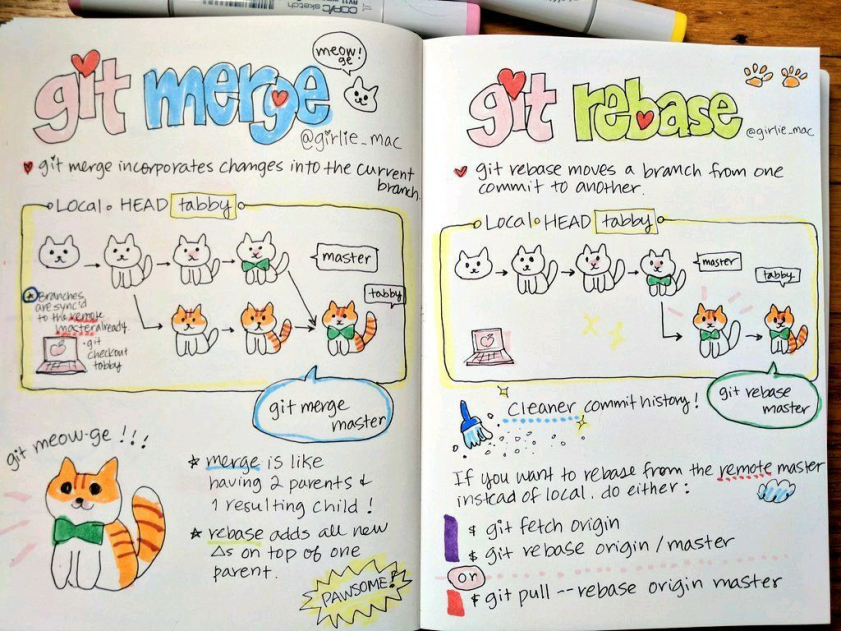 COPIC sketch
meow!
ge
git merge
@girlie_mac
git merge incorporates changes into the current
branch.
Local HEAD tabby
master
Branches
are sync'd
to the remote
master already.
git
checkout
tabby
tabby
git merge
master
git meow-ge !!!
merge is like
having 2 parents &
1 resulting child!
rebase adds all new
Δs on top of one
parent.
PAWSOME!
git rebase
@girlie_mac
git rebase moves a branch from one
commit to another.
Local HEAD tabby
master
tabby
git rebase
master
Cleaner commit history!
If you want to rebase from the remote master
instead of local. do either:
$ git fetch origin
$ git rebase origin/master
or
$ git pull --rebase origin master